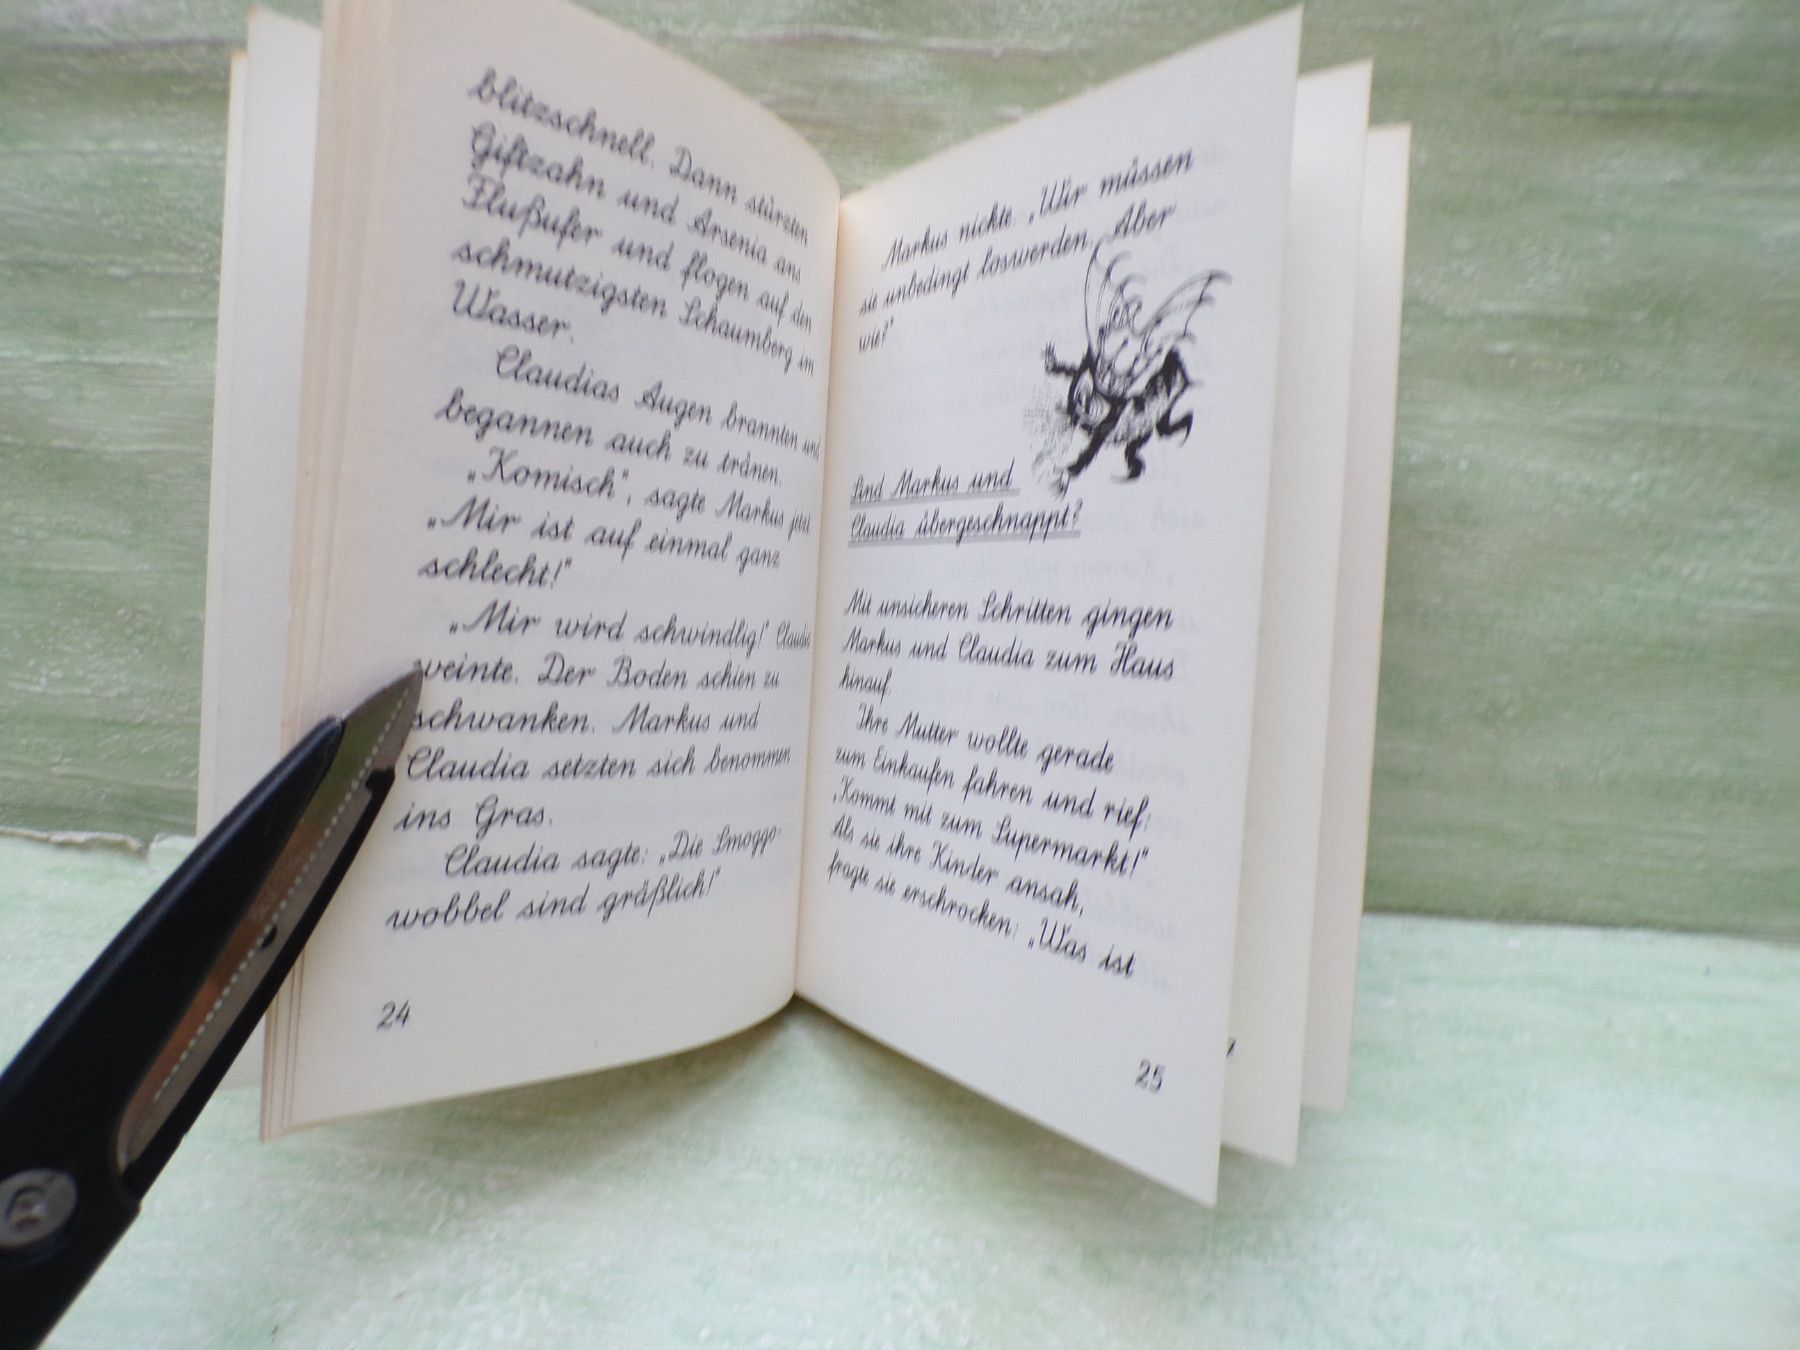 blitzschnell. Dann stürzten
Giftzahn und Arsenia ans
Flußufer und flogen auf den
schmutzigsten Schaumberg im
Wasser.
Claudias Augen brannten und
begannen auch zu tränen.
„Komisch“, sagte Markus jetzt.
„Mir ist auf einmal ganz
schlecht!“
„Mir wird schwindlig!“ Claudia
weinte. Der Boden schien zu
schwanken. Markus und
Claudia setzten sich benommen
ins Gras.
Claudia sagte: „Die Smoggo-
wobbel sind gräßlich!“
24
Markus nickte. „Wir müssen
sie unbedingt loswerden. Aber
wie?“
Sind Markus und
Claudia übergeschnappt?
Mit unsicheren Schritten gingen
Markus und Claudia zum Haus
hinauf.
Ihre Mutter wollte gerade
zum Einkaufen fahren und rief:
„Kommt mit zum Supermarkt!“
Als sie ihre Kinder ansah,
fragte sie erschrocken: „Was ist
25